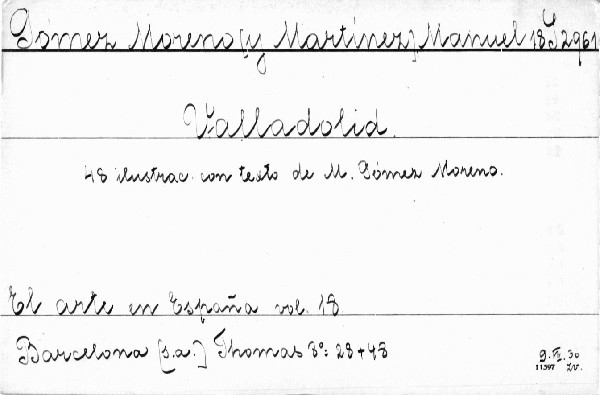 Gómez Moreno [y Martínez], Manuel 18 G 2961
Valladolid.
48 ilustrac. con texto de M. Gómez Moreno.
El arte en España vol. 18
Barcelona [s.a.] Thomas 8°: 28+48
9. XI. 30
11597 Zv.